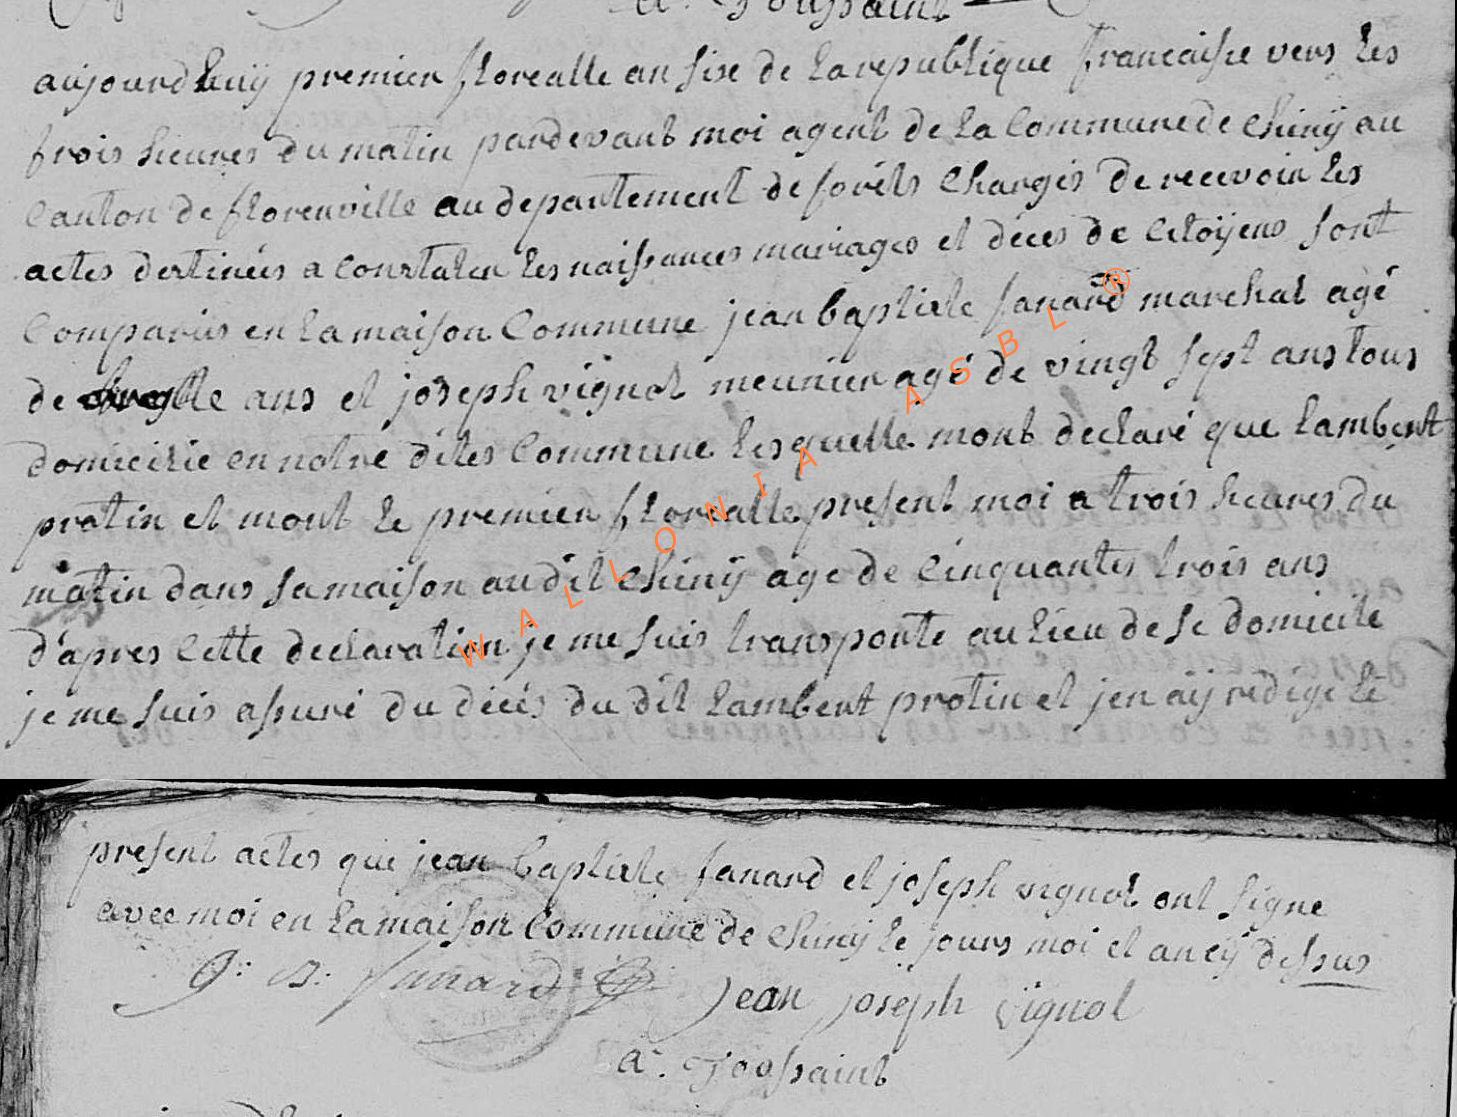 a. Toussaint
aujourdhuy premier florealle an six de la republique francaisse vers les
trois heures du matin pardevant moi agent de la Commune de chiny au
Canton de florenville au departement de forêts Chargés de recevoir les
actes destinées a constater les naissances mariages et déces de Citoÿens sont
Comparus en la maison Commune jean baptiste fanard marchal agé
de ans et joseph vignol meunier agé de vingt sept ans tous
domicilié en notre dites Commune lesquelle mont declaré que lambert
protin et mont le premier florealle present moi a trois heures du
matin dans sa maison au dit chiny age de Cinquantes trois ans
d'apres Cette declaration je me suis transporte au lieu de se domicile
je me suis assuré du décés du dit lambert protin et jen aÿ rédigé le
present actes que jean baptiste fanard et joseph vignol ont signe
avec moi en la maison Commune de chiny le jours moi et an cÿ dessus
J: B: fanard Jean joseph vignol
a. Toussaint
WALLONIA ASBL ®